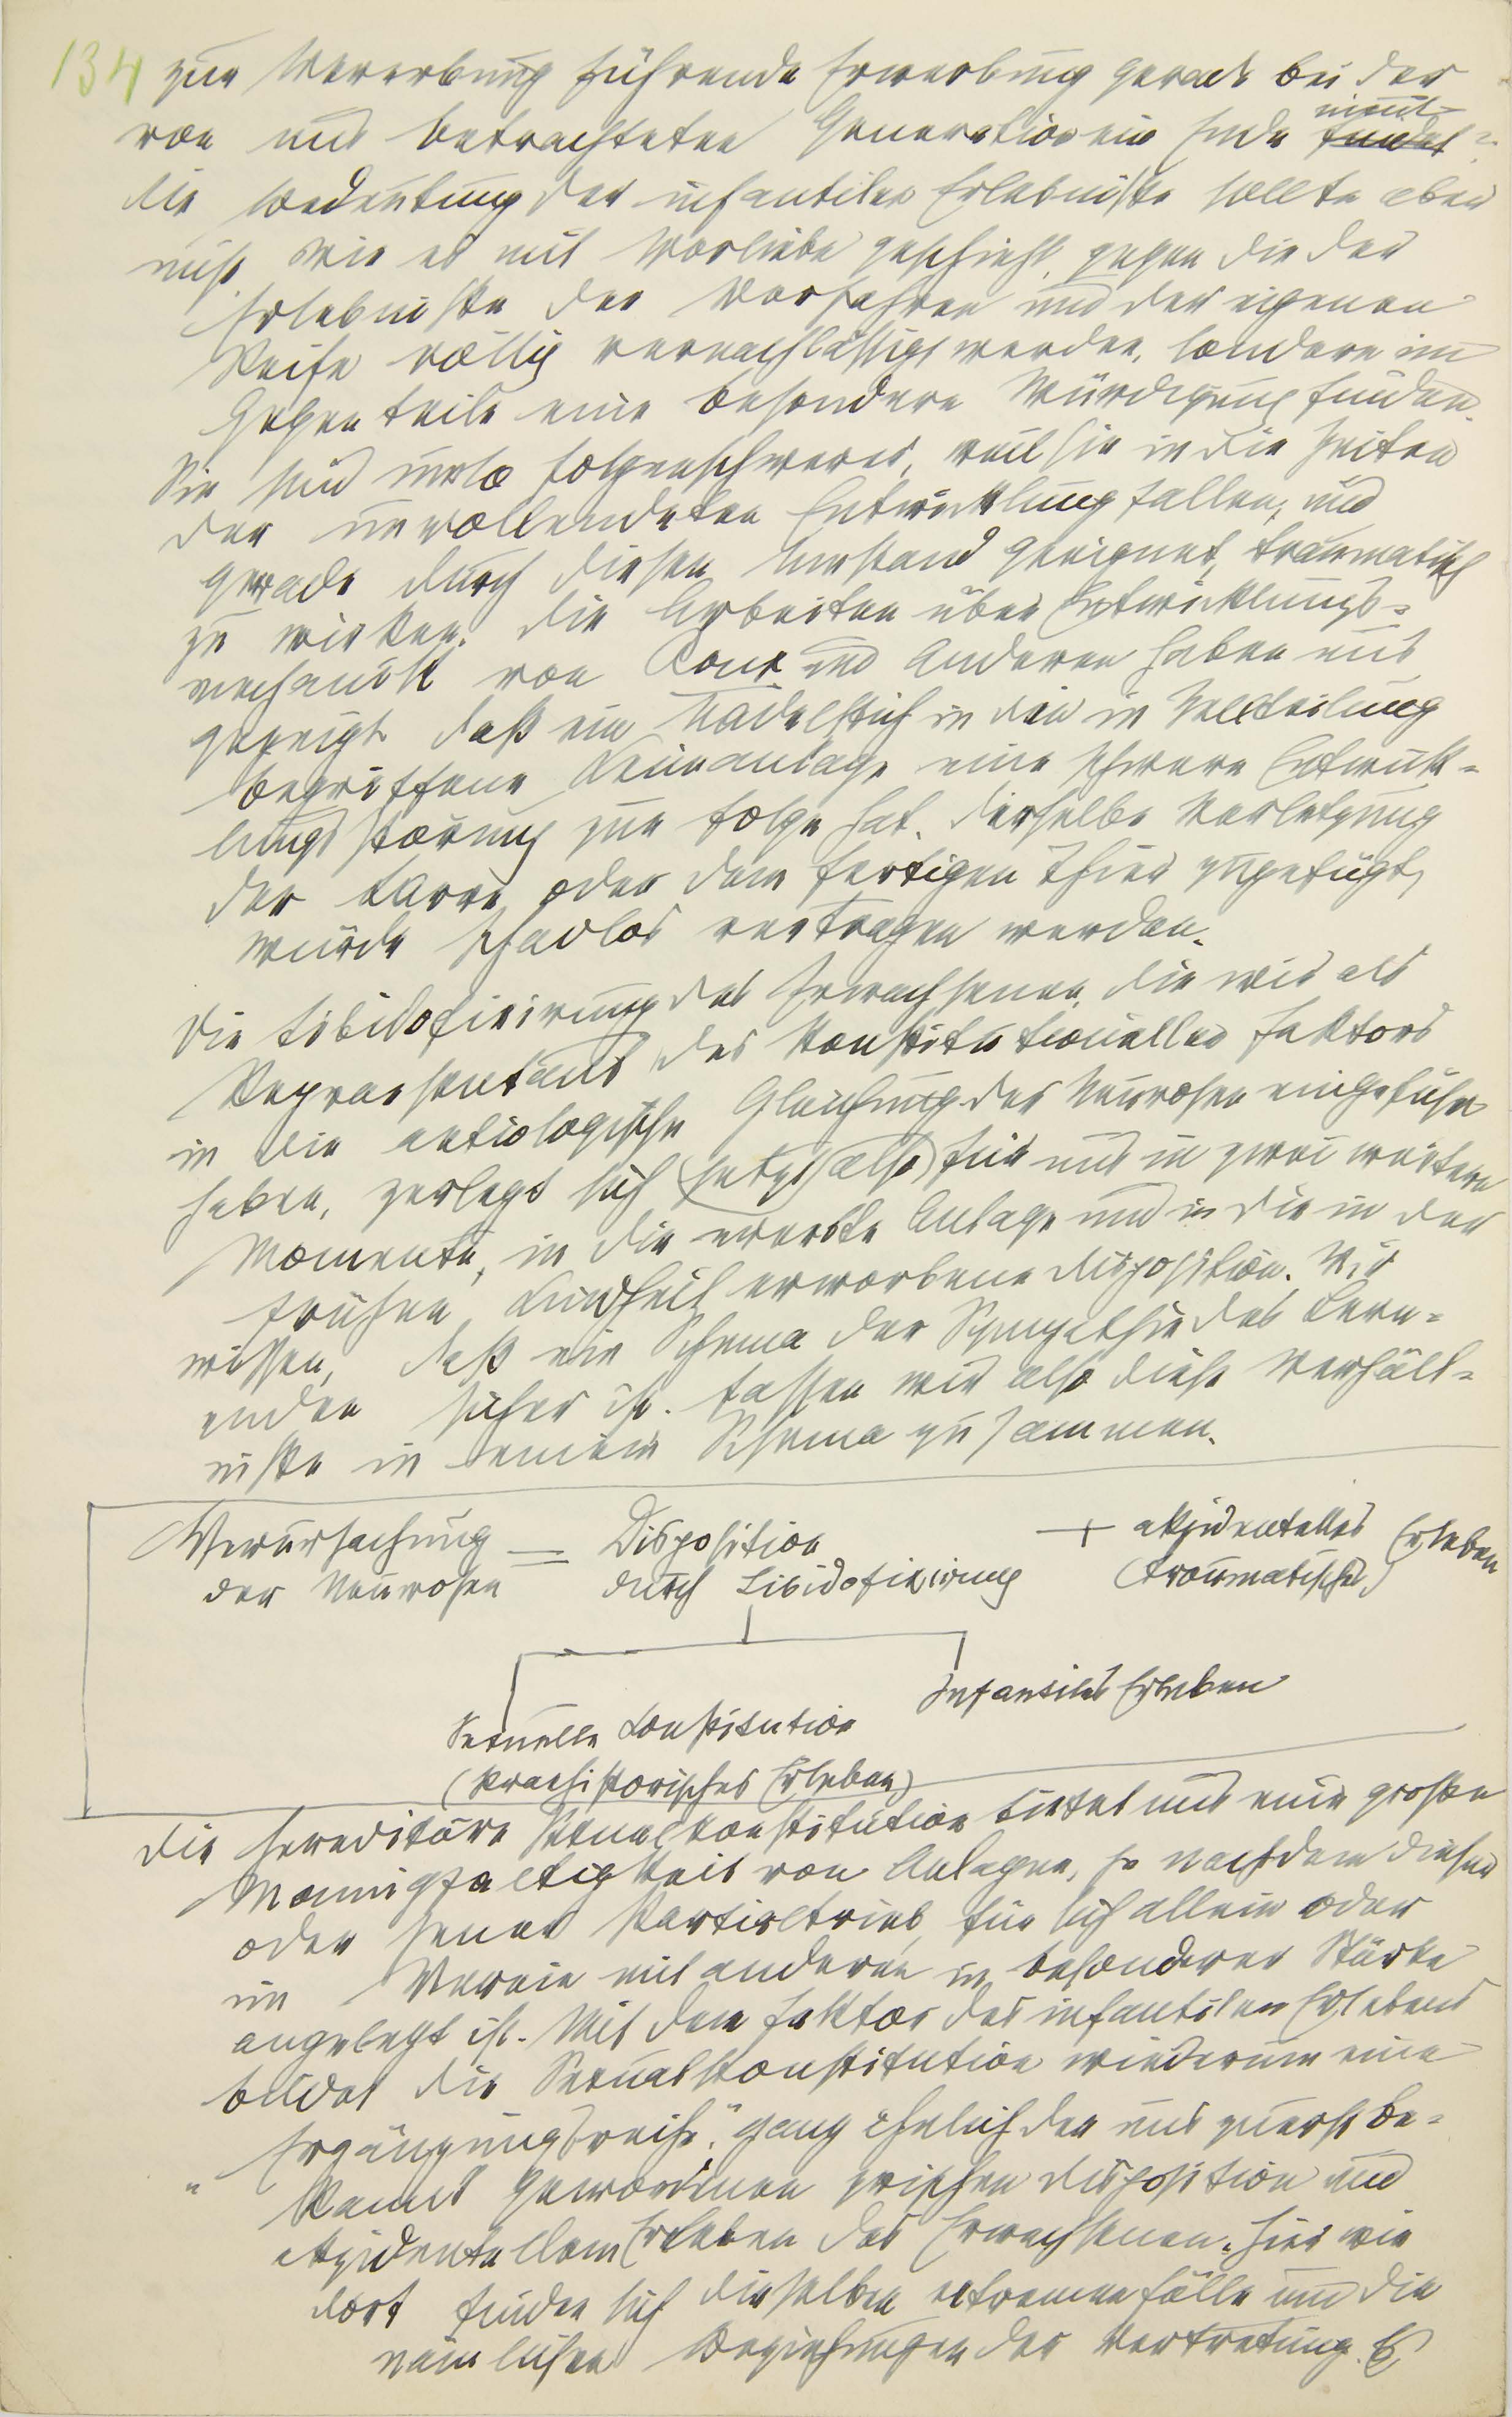 134
zur Vererbung führende Erwerbung gerade bei der
von uns betrachteten Generation ein Ende nimmt
findet?
die Bedeutung der infantilen Erlebnisse sollte aber
nicht, wie es mit Vorliebe geschieht, gegen die der
Erlebnisse der Vorfahren und der eigenen
Reife völlig vernachlässigt werden, sondern im
Gegenteile eine besondere Würdigung finden.
Sie sind umso folgenschwerer, weil sie in die Zeiten
der unvollendeten Entwicklung fallen, und
gerade durch diesen Umstand geeignet, traumatisch
zu wirken. Die Arbeiten über Entwicklungs=
mechanik von Roux und Anderen haben uns
gezeigt, daß ein Nadelstich in die in Zellteilung
begriffene Keimanlage eine schwere Entwick=
lungsstörung zur Folge hat. Dieselbe Verletzung
der Larve oder dem fertigen Thier zugefügt,
würde schadlos vertragen werden.
Die Libidofixirung des Erwachsenen, die wir als
Repraesentant des konstitutionellen Faktors
in die aetiologische Gleichung der Neurosen eingeführt
haben, zerlegt sich (jetzt) also für uns in zwei weitere
Momente, in die ererbte Anlage und in die in der
frühen Kindheit erworbene Disposition. Wir
wissen, daß ein Schema der Sympathie des Lern=
enden sicher ist. Fassen wir also diese Verhält=
nisse in einem Schema zusammen.
Verursachung = Disposition + akzidentelles Erleben
der Neurosen durch Libidofixirung (traumatisches)
Infantiles Erleben
Sexuelle Konstitution
(Praehistorisches Erleben)
Die hereditäre Sexualkonstitution bietet uns eine große
Mannigfaltigkeit von Anlagen, je nachdem dieser
oder jener Partialtrieb für sich allein oder
im Verein mit anderen in besonderer Stärke
angelegt ist. Mit dem Faktor des infantilen Erlebens
bildet die Sexualkonstitution wiederum eine
„Ergänzungsreihe", ganz ähnlich der uns zuerst be=
kannt gewordenen zwischen Disposition und
akzidentellem Erleben des Erwachsenen. Hier wie
dort finden sich dieselben extremen Fälle und die
nämlichen Beziehungen der Vertretung. Es